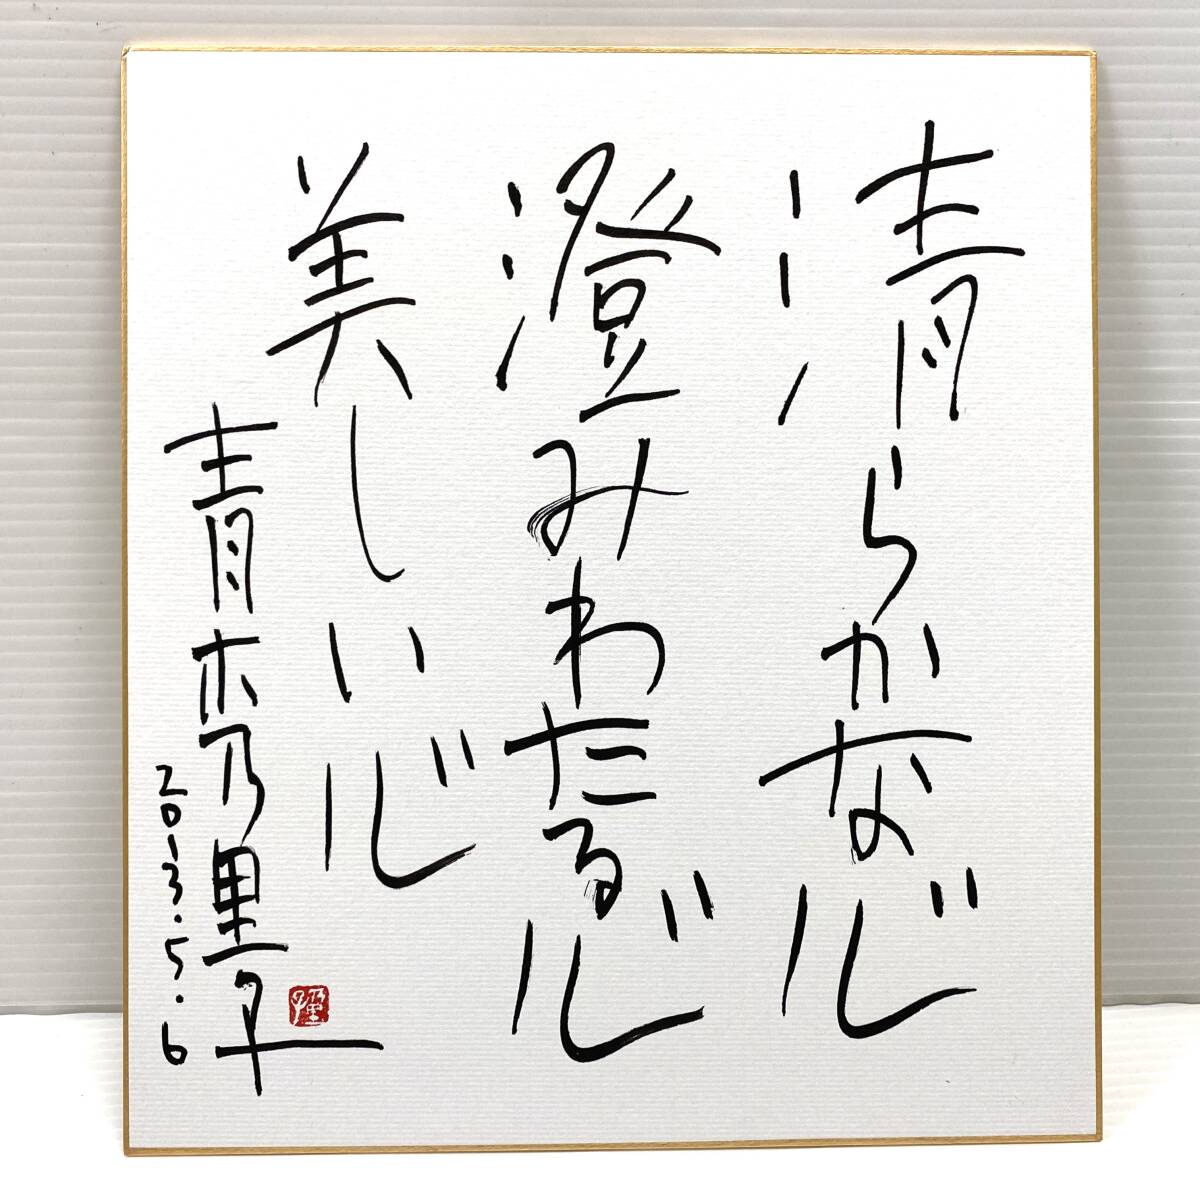 清らかな心
澄みわたる心
美しい心
青木乃里子
2013.5.6
乃里子